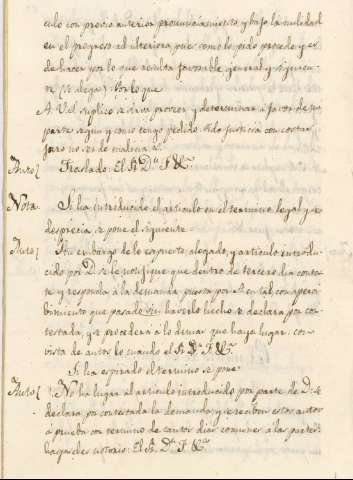 culo con previo anterior pronunciamiento, y bajo la nulidad
en el progreso ad ulteriora, pues como lo pido procede y es
de hacer por lo que resulta favorable general y siguien-
te (se alega). Por lo que
A V.S. suplico se sirva proveer y determinar a favor de mi
parte segun y como tengo pedido. Pido justicia con costas
juro no ser de malicia &.
Auto Traslado. El Sr. Dn. F. &ca.
Nota. Si ha introducido el articulo en el termino legal y se
desprecia, se pone el siguiente
Auto Sin embargo de lo expuesto, alegado, y articulo introdu-
cido por D. se le notifique que dentro de tercero dia contes-
te y responda a la demanda puesta por A. en tal, con aperci-
bimiento que pasado sin haverlo hecho se declara por con-
testada, y se procederá a lo demas que haya lugar: con
vista de autos lo mandó el Sr. D. F. &ca.
Si ha espirado el termino se pone
Auto No ha lugar al articulo introducido por parte de D: se
declara por contestada la demanda, y se reciben estos autos
á prueba con termino de tantos dias comunes a las partes:
hagaseles notorio: El Sr. Dn. F. &ca.